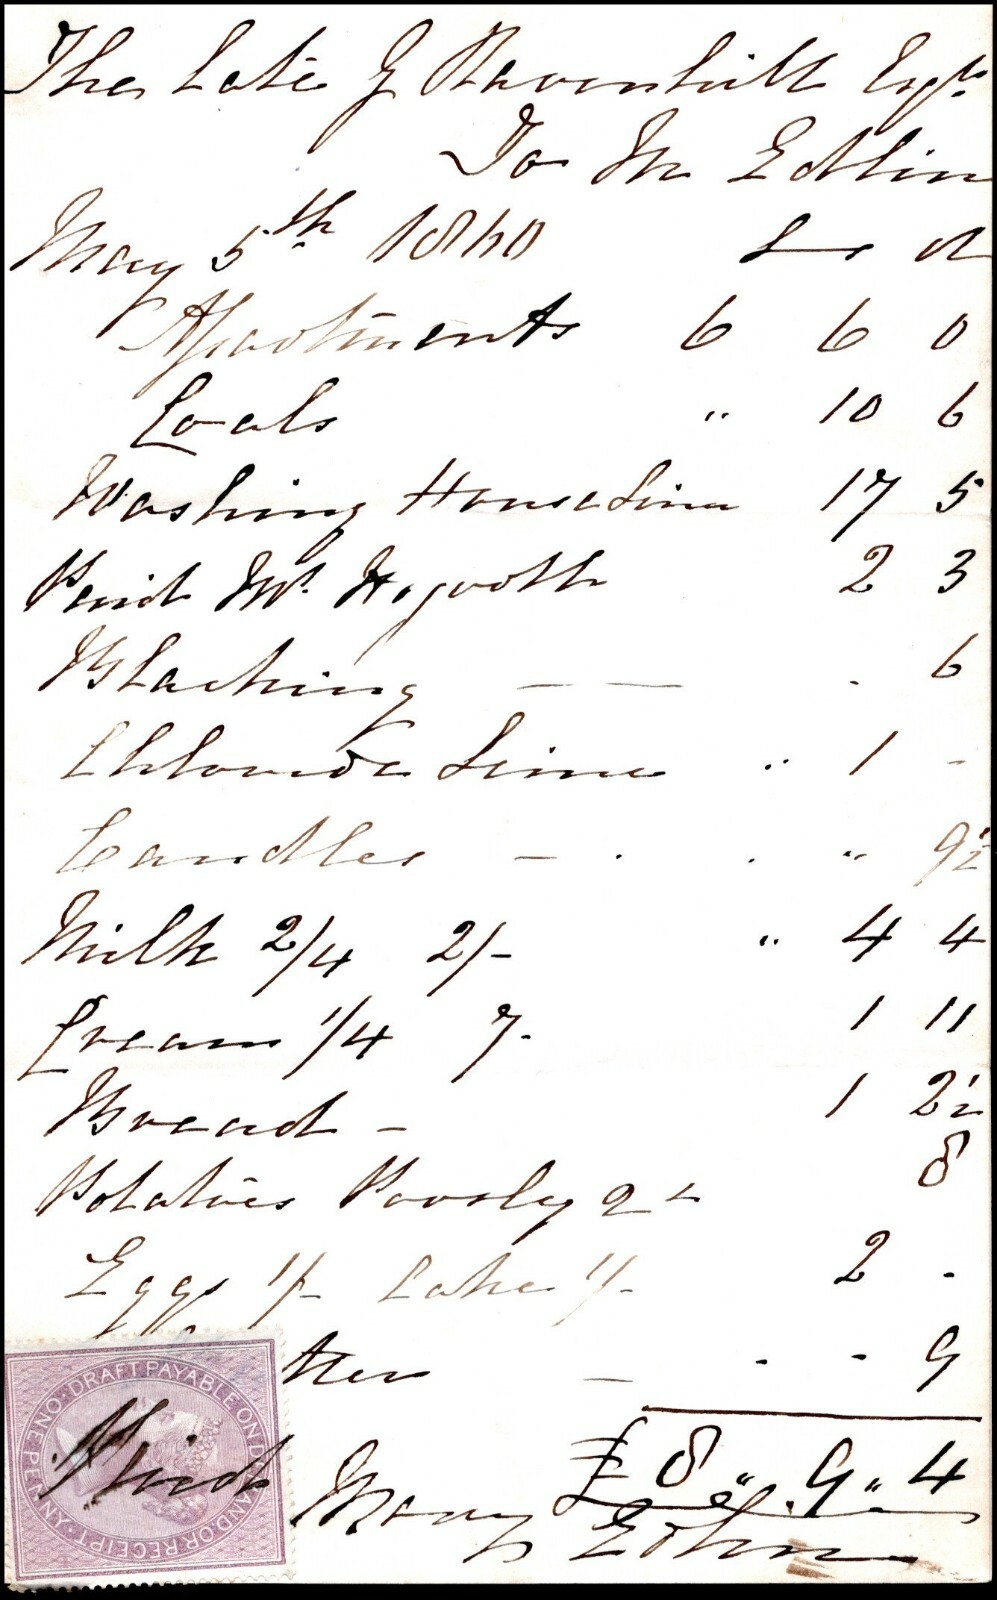 The Late G Ravenhill Esqr.
To M Edlin
May 5th. 1860 £ s d
Apartments 6 6 0
Coals " 10 6
Washing House Linen 17 5
Paid Mr. Hogooth 2 3
Blacking — — . 6
Chloride Lime " 1 -
Candles — . . " 9½
Milk 2/4 2/- " 4 4
Cream 1/4 7. 1 11
Bread - 1 2½
Potatoes Parsley 2 8
Eggs 1/- Cake 1/- 2 -
tter — - - 9
£ 8 " 9 " 4
DRAFT PAYABLE ON D AND.OR RECEIPT ONE PENNY
Paid
Mary Edlin